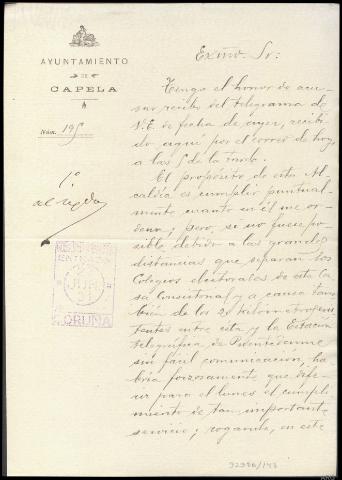 AYUNTAMIENTO
DE
CAPELA
Núm. 195
1º
al
Excmo. Sr:
Tengo el honor de acu-
sar recibo del telegrama de
V.E. de fecha de ayer, recibi-
do aquí por el correo de hoy
a las 5 de la tarde.
El propósito de esta Al-
caldía es cumplir puntual-
mente cuanto en él me or-
dena; pero, si no fuese po-
sible, debido a las grandes
distancias que separan los
Colegios electorales de esta Ca-
sa Consistorial y a causa tam-
bién de los 20 kilometros exis-
tentes entre esta y la Estación
telegráfica de Puentedeume
sin fácil comunicación, ha-
bría forzosamente que dife-
rir para el lunes el cumpli-
miento de tan importante
servicio; rogando, en este
ENTRADA
JUN
CORUÑA
32986/143